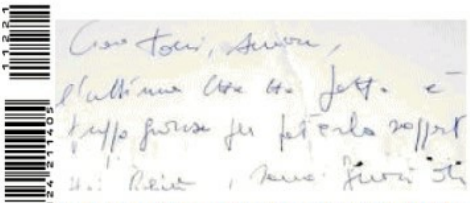 11221
24211405
Caro Toni, Amore,
l'ultima che ho fatto è
troppo grossa per poterla sopport
sono fuori